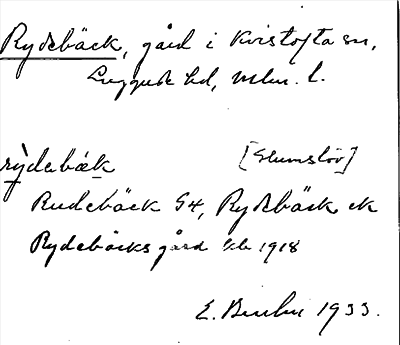 Rydebäck, gård i Kvistofta sn,
Luggude hd, Mlm. l.
rỳdabæk [Glumslöv]
Rudebäck G4, Rydebäck ek
Rydebäcks gård kb 1918
E. 1933.